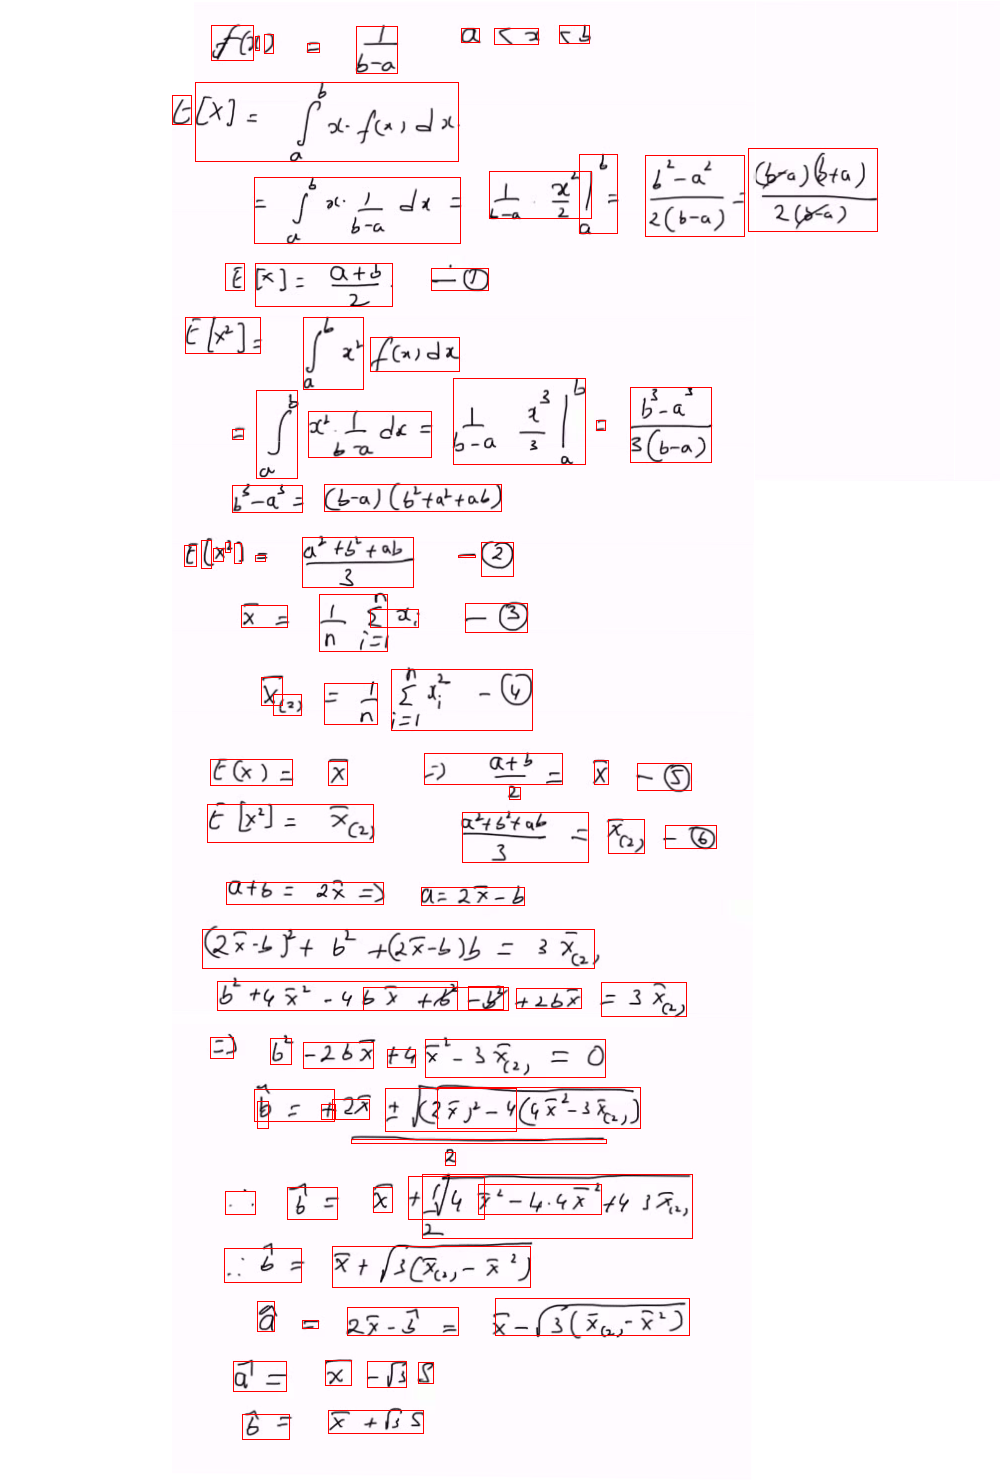 f(x) = 1/(b-a) a < x < b
E[X] = ∫_a^b x · f(x) dx
= ∫_a^b x · 1/(b-a) dx = 1/(b-a) · x²/2 |_a^b = (b²-a²)/(2(b-a)) = ((b-a)(b+a))/(2(b-a))
E[x] = (a+b)/2 — ①
E[x²] = ∫_a^b x² f(x) dx
= ∫_a^b x² · 1/(b-a) dx = 1/(b-a) x³/3 |_a^b = (b³-a³)/(3(b-a))
b³-a³ = (b-a)(b²+a²+ab)
E(x²) = (a²+b²+ab)/3 — ②
x̄ = 1/n Σ_{i=1}^n x_i — ③
x̄_(2) = 1/n Σ_{i=1}^n x_i² — ④
E(x) = x̄ => (a+b)/2 = x̄ — ⑤
E[x²] = x̄_(2) (a²+b²+ab)/3 = x̄_(2) — ⑥
a+b = 2x̄ => a = 2x̄-b
(2x̄-b)² + b² + (2x̄-b)b = 3 x̄_(2)
b² + 4x̄² - 4bx̄ + b² - b² + 2bx̄ = 3 x̄_(2)
=> b² - 2bx̄ + 4x̄² - 3x̄_(2) = 0
b̂ = (+2x̄ ± √((2x̄)² - 4(4x̄² - 3x̄_(2))))/2
∴ b̂ = x̄ + 1/2 √(4x̄² - 4·4x̄² + 4 3x̄_(2))
∴ b̂ = x̄ + √(3(x̄_(2) - x̄²))
â = 2x̄ - b̂ = x̄ - √(3(x̄_(2) - x̄²))
â = x̄ - √3 S
b̂ = x̄ + √3 S